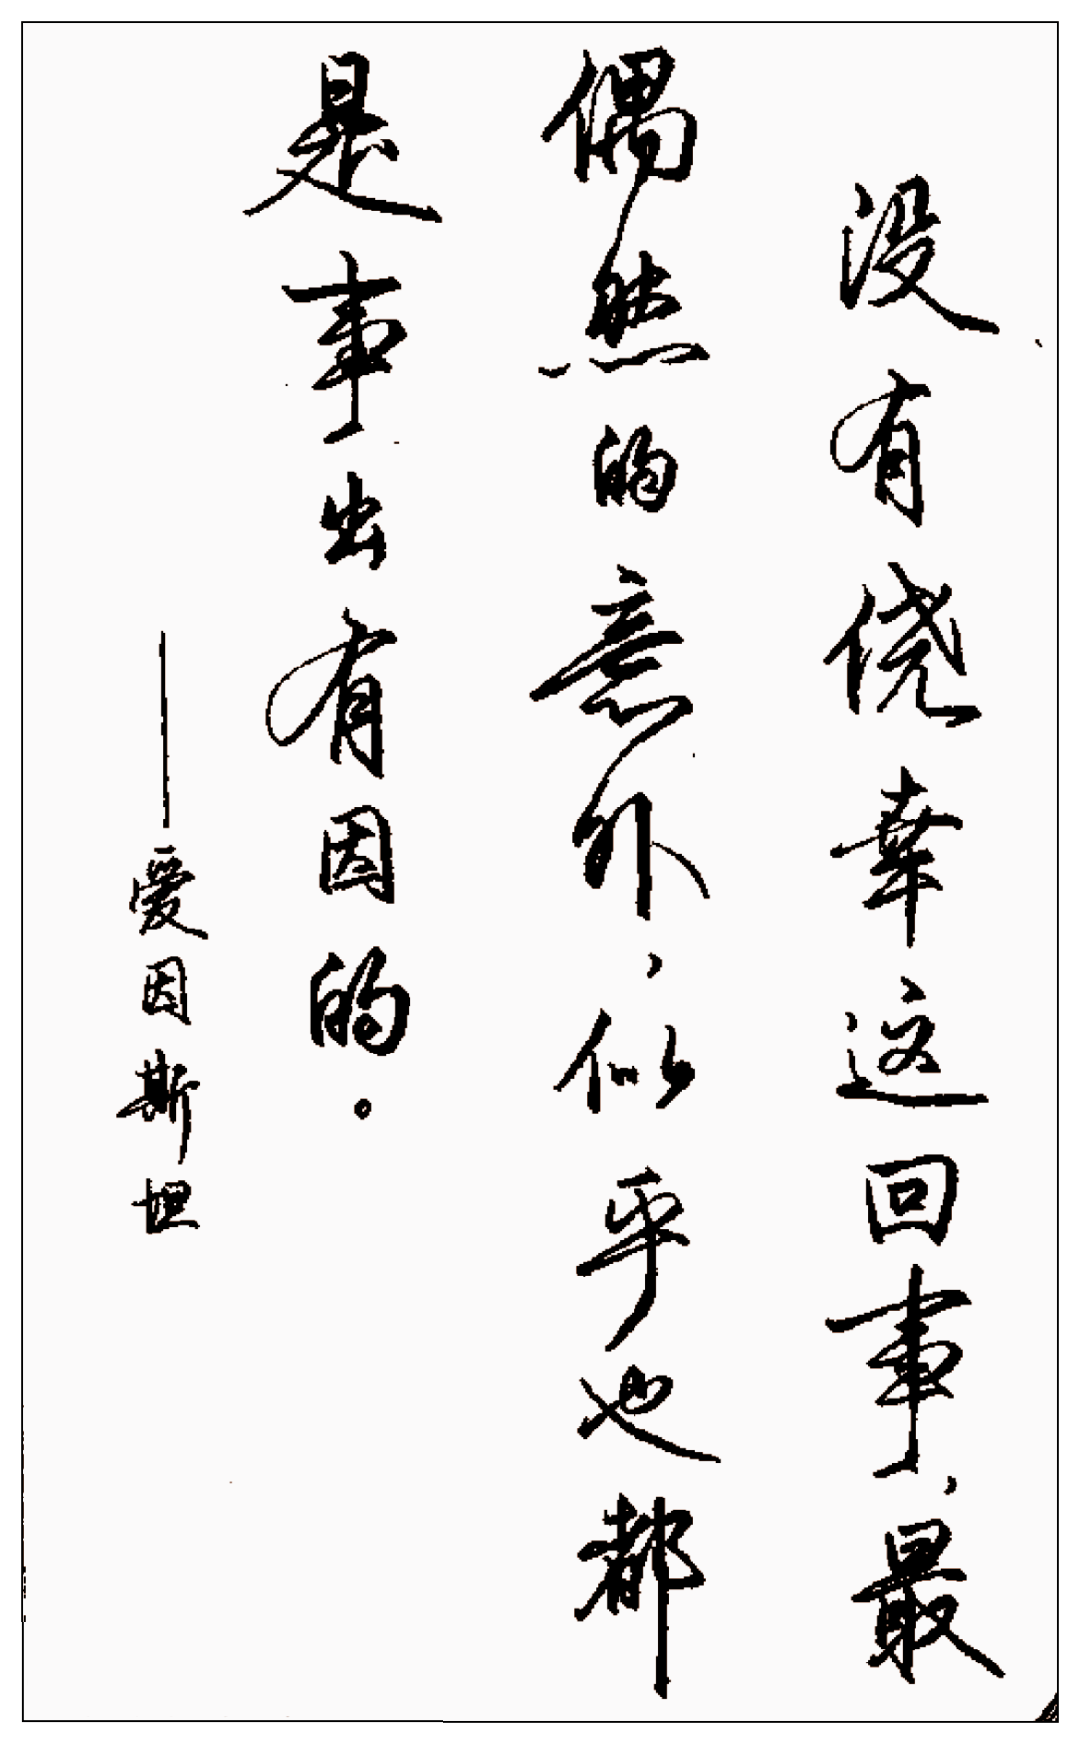 没有侥幸这回事,最
偶然的意外,似乎也都
是事出有因的。
——爱因斯坦